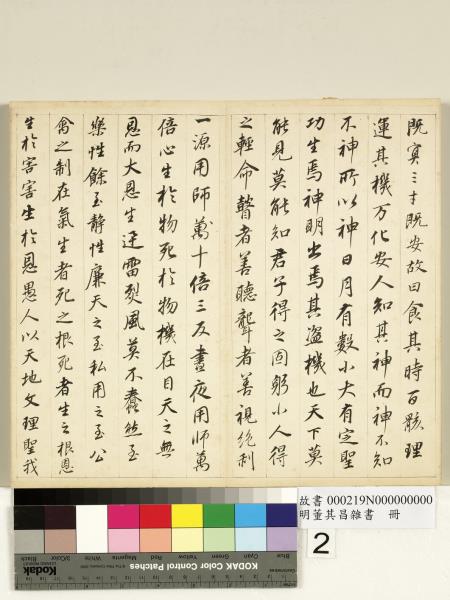 既宜三才既安故曰食其時百骸理
運其機万化安人知其神而神不知
不神所以神日月有數小大有定聖
功生焉神明出焉其盜機也天下莫
能見莫能知君子得之固躬小人得
之輕命瞽者善聽聾者善視絕利
一源用師萬十倍三反晝夜用師萬
倍心生於物死於物機在目天之無
恩而大恩生迅雷烈風莫不蠢然至
樂性餘至靜性廉天之至私用之至公
禽之制在氣生者死之根死者生之根恩
生於害害生於恩愚人以天地文理聖我
故書 000219N000000000
明董其昌雜書 冊
2
KODAK Color Control Patches
Blue Cyan Green Yellow Red Magenta White 3/Color Black
Kodak